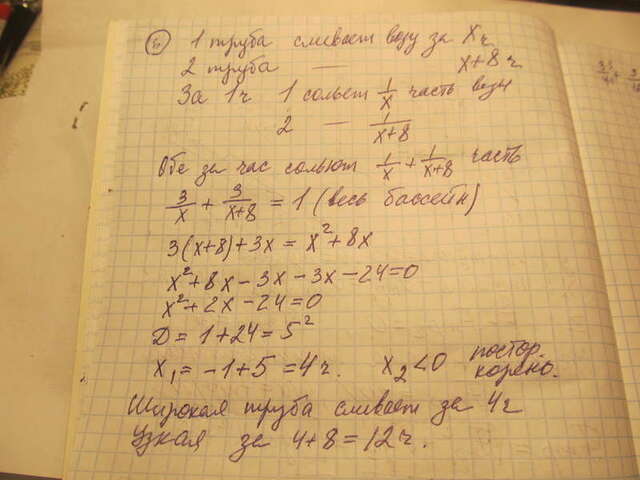 5) 1 труба сливает воду за x ч
2 труба — x+8 ч
За 1ч 1 сольет 1/x часть воды
2 — 1/(x+8)
Обе за час сольют 1/x + 1/(x+8) часть
3/x + 3/(x+8) = 1 (весь бассейн)
3(x+8)+3x = x²+8x
x²+8x-3x-3x-24=0
x²+2x-24=0
D = 1+24 = 5²
x₁ = -1+5 = 4ч. x₂<0 постор. корень.
Широкая труба сливает за 4ч
Узкая за 4+8=12ч.